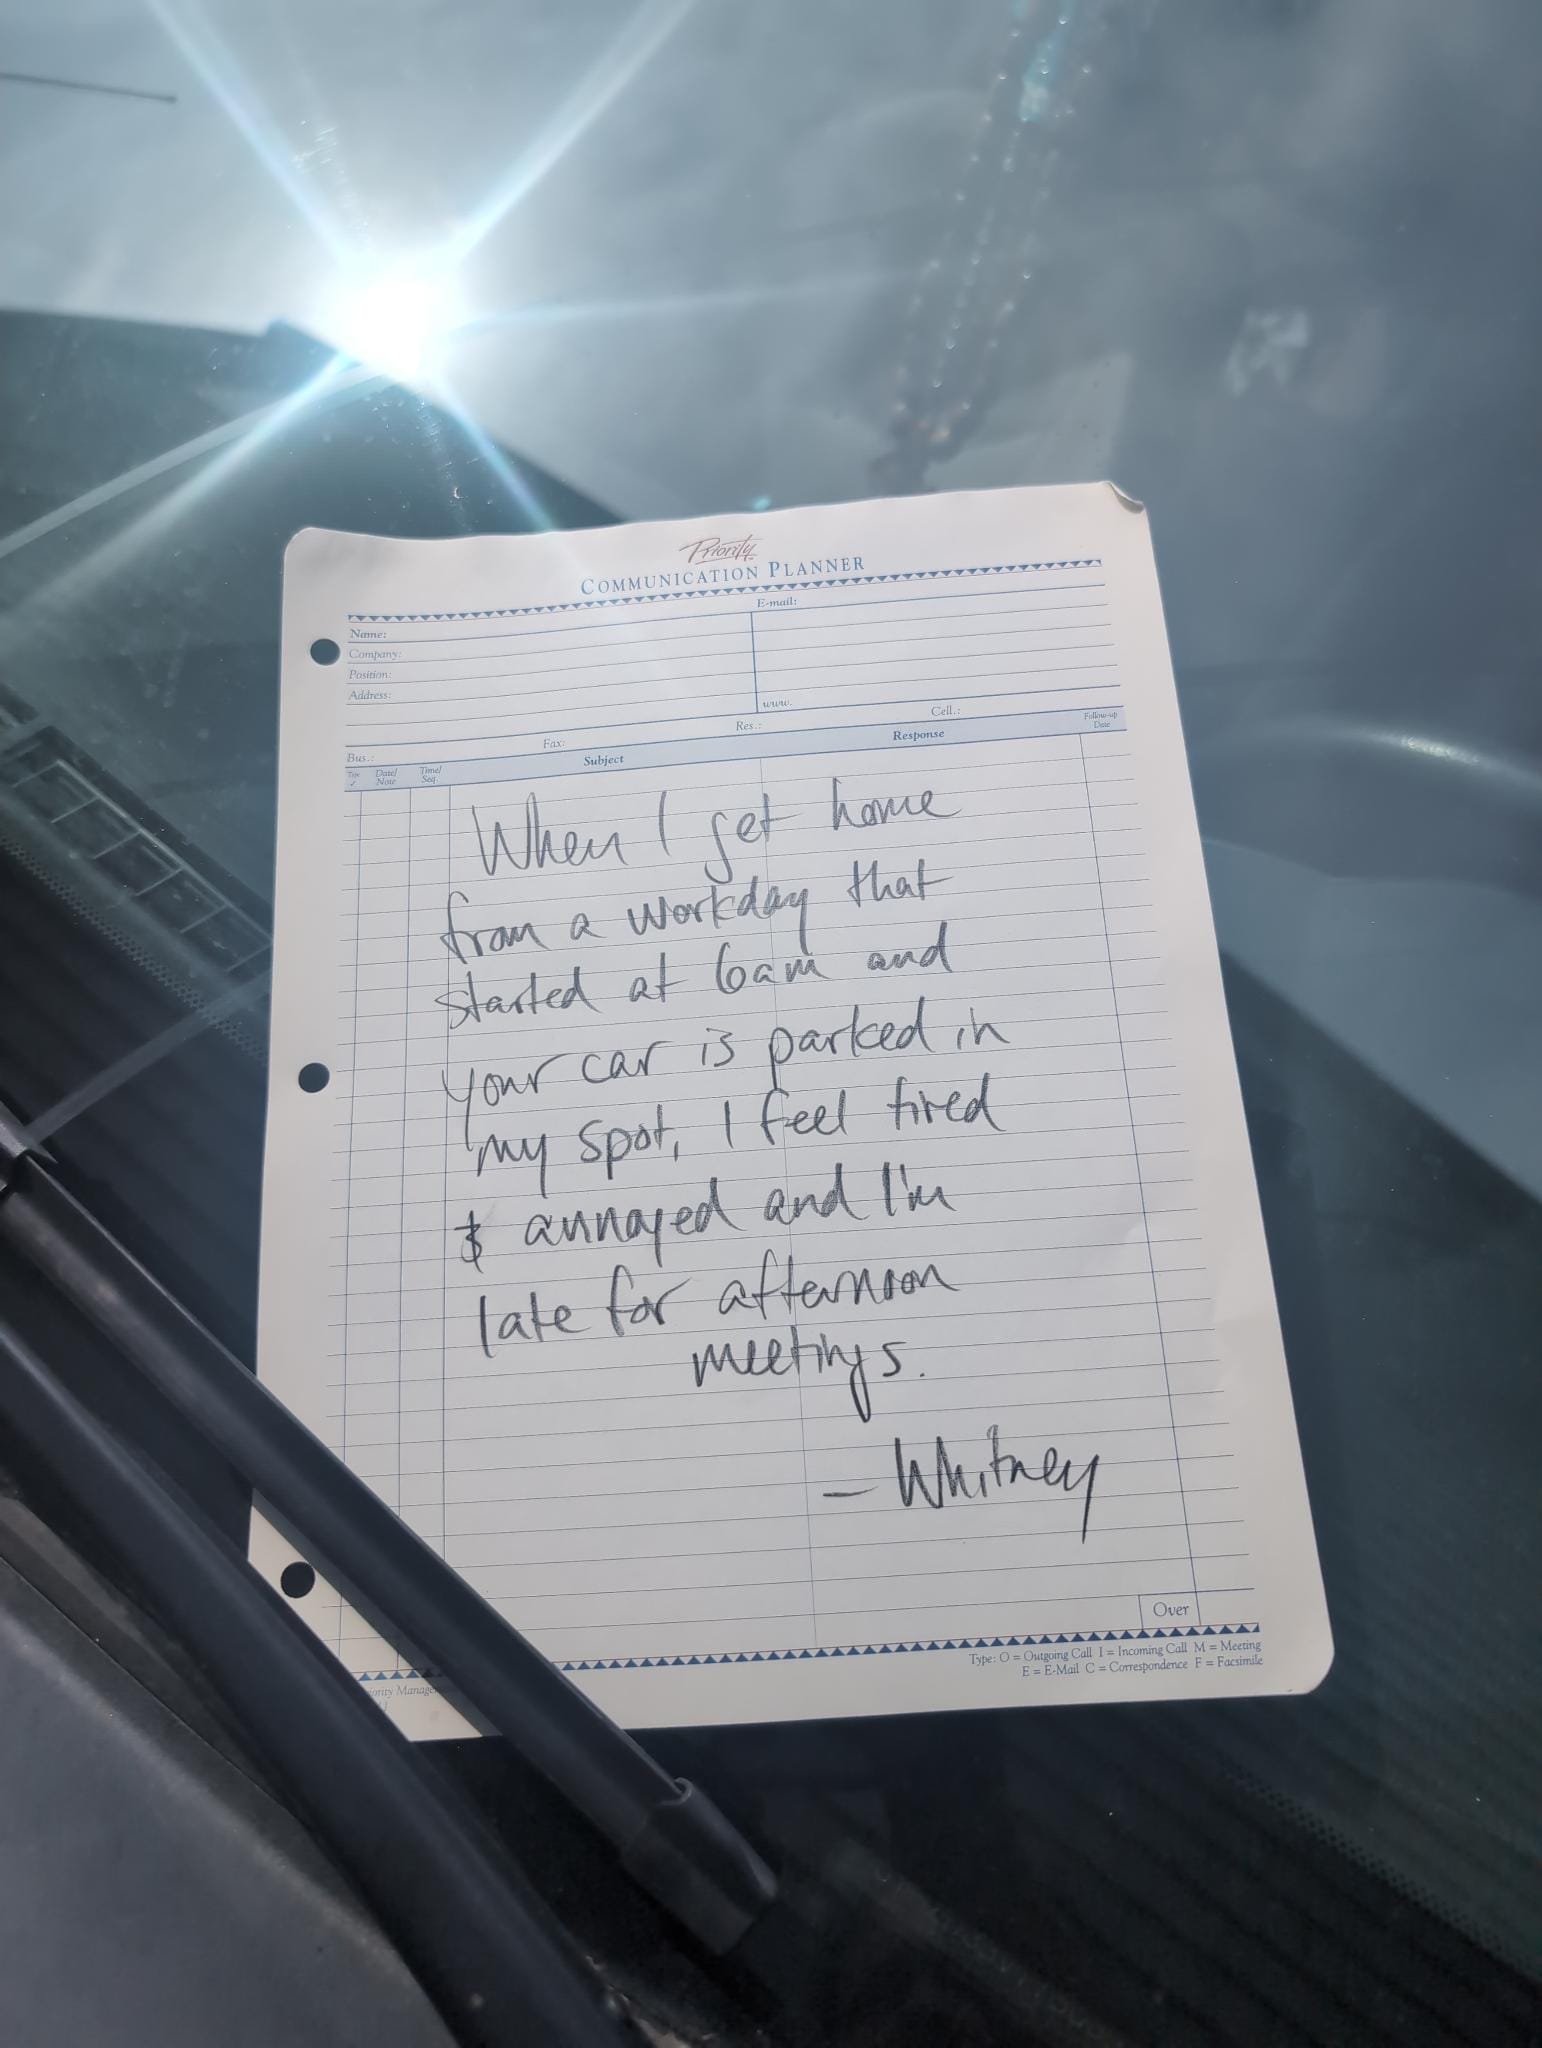 Priority
COMMUNICATION PLANNER
E-mail:
Name:
Company:
Position:
Address:
www.
Bus.: Fax: Res.: Cell.:
Type ✓ Date/ Note Time/ Seq. Subject Response Follow-up Date
When I get home
from a workday that
started at 6am and
your car is parked in
my spot, I feel tired
& annoyed and I'm
late for afternoon
meetings.
- Whitney
Over
Type: O = Outgoing Call I = Incoming Call M = Meeting
E = E-Mail C = Correspondence F = Facsimile